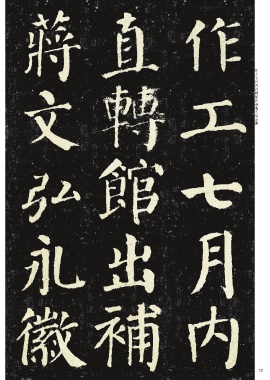 作工七月内
直轉館出補
蔣文弘永徽